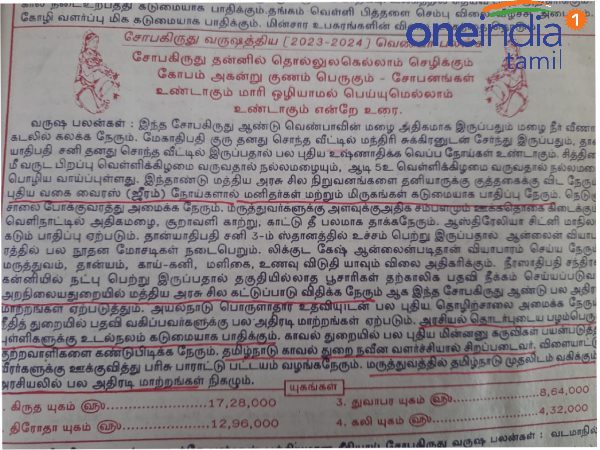 கால நடைஉற்பத்தி கடுமையாக பாதிக்கும்.தங்கம் வெள்ளி பித்தளை செம்பு விலை
கோழி வளர்ப்பு மிக கடுமையாக பாதிக்கும். மின்சார உபகரணங்களின்
oneindia
1
tamil
சோபகிருது வருஷத்திய (2023-2024) வெண்பா பலன்
சோபகிருது தன்னில் தொல்லுலகெல்லாம் செழிக்கும்
கோபம் அகன்று குணம் பெருகும் - சோபனங்கள்
உண்டாகும் மாரி ஒழியாமல் பெய்யுமெல்லாம்
உண்டாகும் என்றே உரை.
வருஷ பலன்கள் : இந்த சோபகிருது ஆண்டு வெண்பாவின் மழை அதிகமாக இருப்பதும் மழை நீர் வீணா
கடலில் கலக்க நேரும். மேகாதிபதி குரு தனது சொந்த வீட்டில் மந்திரி சுக்கிரனுடன் சேர்ந்து இருப்பதும், தா
யாதிபதி சனி தனது சொந்த வீட்டில் இருப்பதால் பல புதிய உஷ்ணாதிக்க வெப்ப நோய்கள் உண்டாகும். சித்திரை
மீ வருட பிறப்பு வெள்ளிக்கிழமை வருவதால் நல்லமழையும், ஆடி 5உ வெள்ளிக்கிழமை வருவதால் நல்லமழை
பொழிய வாய்ப்புள்ளது. இந்தாண்டு மத்திய அரசு சில நிறுவனங்களை தனியாருக்கு குத்தகைக்கு விட நேரும்
புதிய வகை வைரஸ் (ஜீரம்) நோய்களால் மனிதர்கள் மற்றும் மிருகங்கள் கடுமையாக பாதிப்பு நேரும். நெடு
சாலை போக்குவரத்து அமைக்க நேரும். மருத்துவர்களுக்கு அளவுக்குஅதிக சம்பளமும் ஊக்கத்தொகை கிடைக்கும்
வெளிநாட்டில் அதிகமழை, சூறாவளி காற்று, காட்டு தீ பலமாக தாக்கநேரும். ஆஸ்திரேலியா சிட்னி மாநில
கடும் பாதிப்பு ஏற்படும். தான்யாதிபதி சனி 3-ம் ஸ்தானத்தில் உச்சம் பெற்று இருப்பதால் ஆன்லைன் வியாபா
ரத்தில் பல நூதன மோசடிகள் நடைபெறும். லிக்குட கேஷ் ஆன்லைன்படிதான் வியாபாரம் செய்ய நேரும்
மருத்துவம், தான்யம், காய்-கனி, மளிகை, உணவு விடுதி யாவும் விலை அதிகரிக்கும். நீரஸாதிபதி சந்திரன்
கன்னியில் நட்பு பெற்று இருப்பதால் தகுதியில்லாத பூசாரிகள் தற்காலிக பதவி நீக்கம் செய்யப்படுவ
அறநிலையதுறையில் மத்திய அரசு சில கட்டுப்பாடு விதிக்க நேரும் ஆக இந்த சோபகிருது ஆண்டு பல அதி
மாற்றங்கள் ஏற்படுத்தும். அயல்நாடு பொருளாதார உதவியுடன் பல புதிய தொழிற்சாலை அமைக்க நேரும்
நீதித் துறையில் பதவி வகிப்பவர்களுக்கு பல அதிரடி மாற்றங்கள் ஏற்படும். அரசியல் தொடர்புடைய பழம்பெரு
புள்ளிகளுக்கு உடல்நலம் கடுமையாக பாதிக்கும். காவல் துறையில் பல புதிய மின்னணு கருவிகள் பயன்படுத்தி
குற்றவாளிகளை கண்டுபிடிக்க நேரும். தமிழ்நாடு காவல் துறை நவீன வளர்ச்சியால் சிறப்படைவர். விளையாட்டு
வீரர்களுக்கு ஊக்குவித்து பரிசு பாராட்டு பட்டயம் வழங்கநேரும். மருத்துவத்தில் தமிழ்நாடு முதலிடம் வகிக்கும்
அரசியலில் பல அதிரடி மாற்றங்கள் நிகழும்.
யுகங்கள்
1. கிருத யுகம் ௵.......................17,28,000 3. துவாபர யுகம் ௵.......................8,64,000
2. திரேதா யுகம் ௵.......................12,96,000 4. கலி யுகம் ௵.......................4,32,000
சோபகிருது வருஷ பலன்கள் : வடமாநில